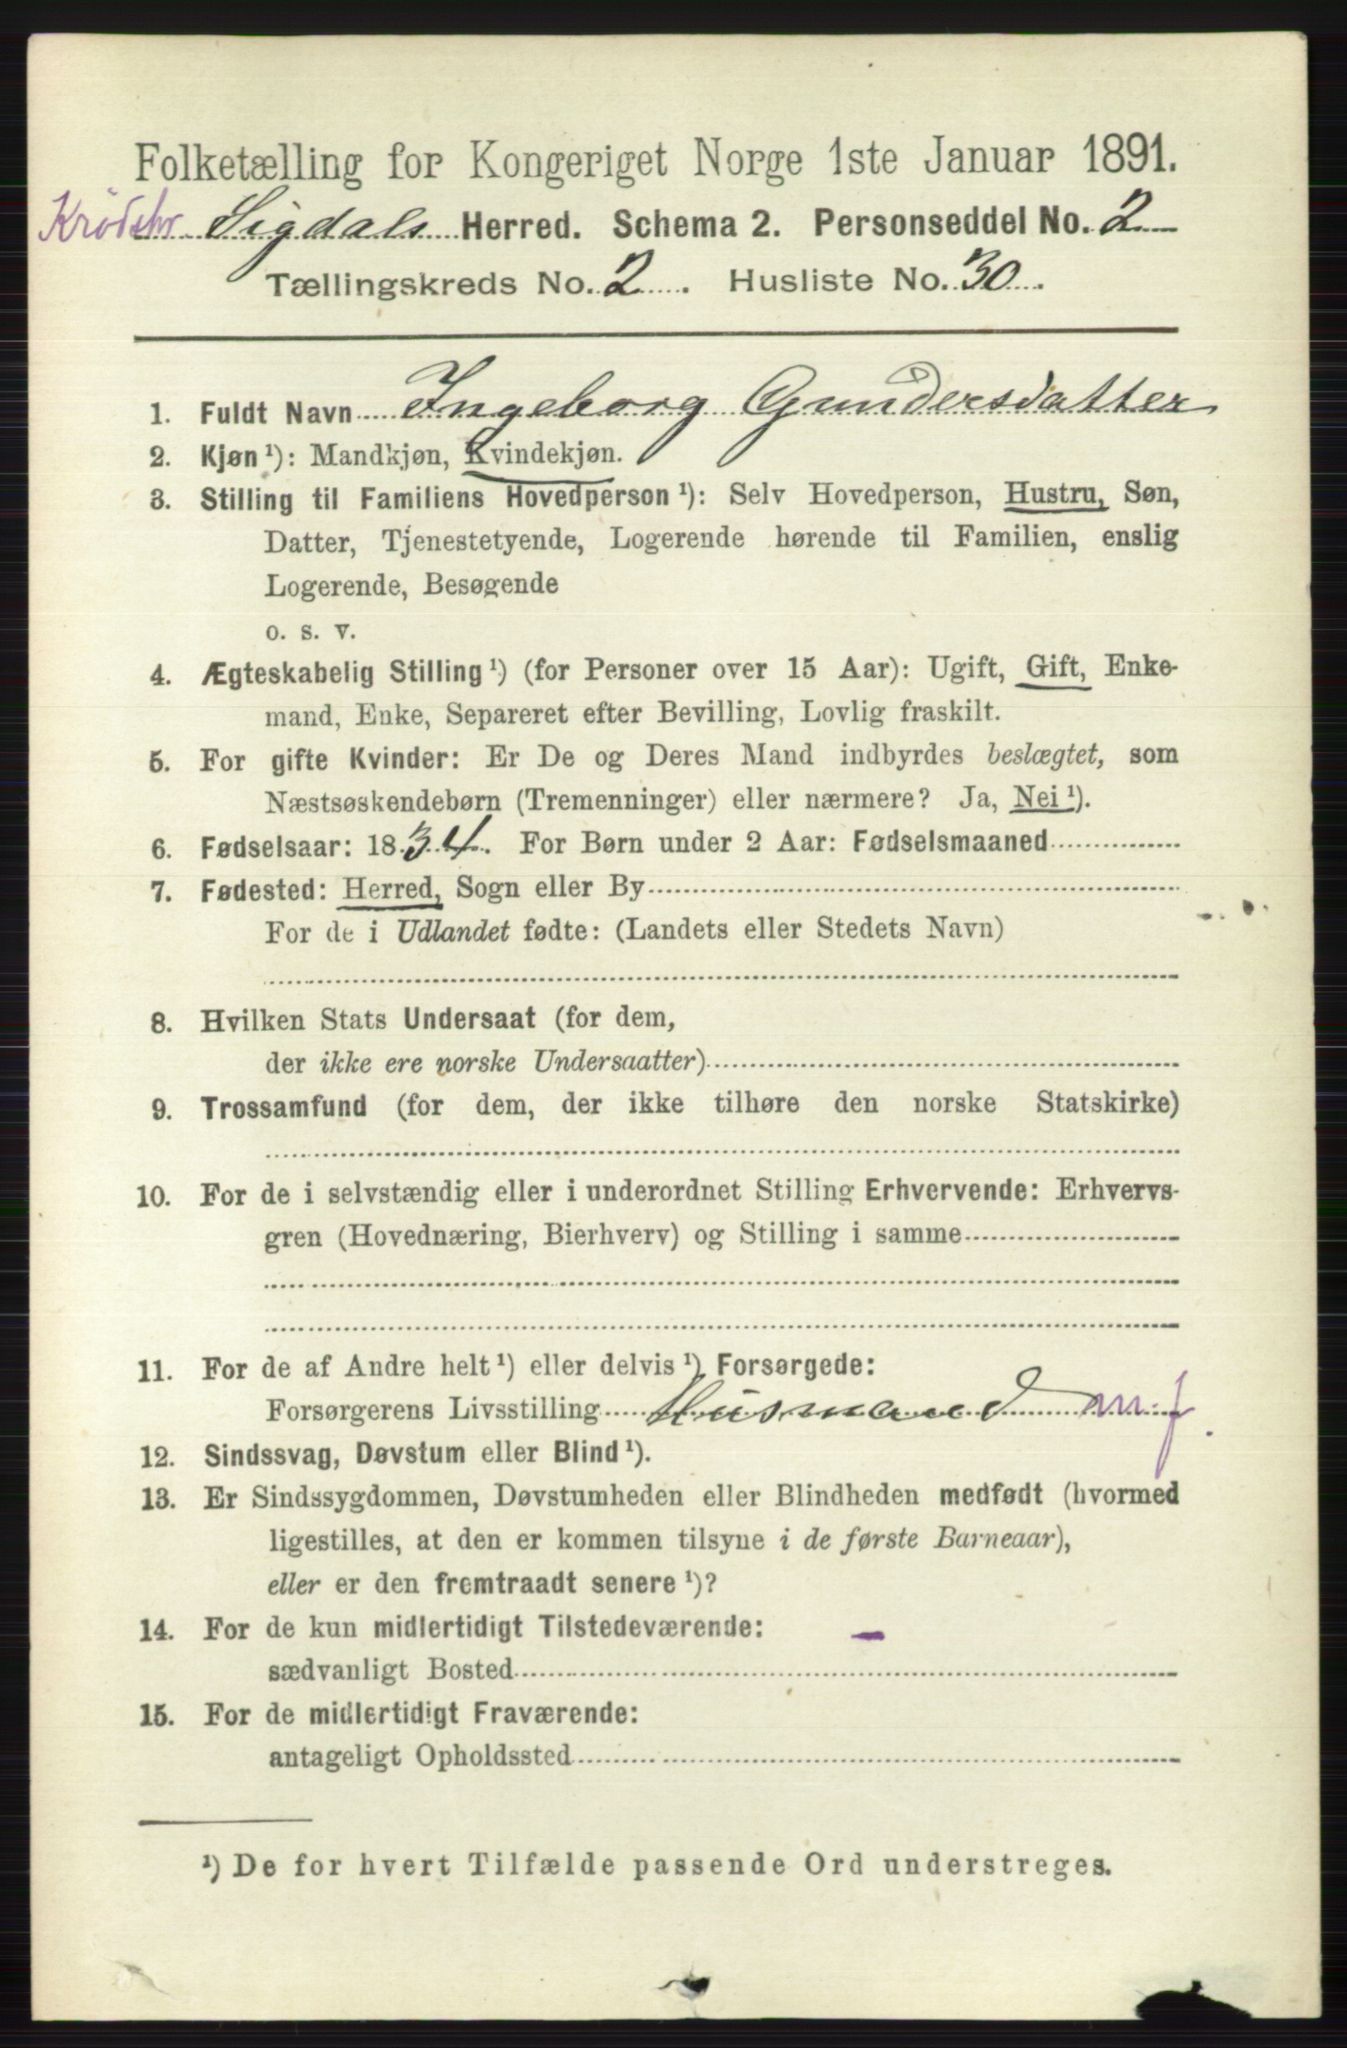 Folketælling for Kongeriget Norge 1ste Januar 1891.
Sigdals Herred. Schema 2. Personseddel No. 2
Tællingskreds No. 2. Husliste No. 30.
1. Fuldt Navn Ingeborg Gundersdatter
2. Kjøn ¹): Mandkjøn, Kvindekjøn.
3. Stilling til Familiens Hovedperson ¹): Selv Hovedperson, Hustru, Søn,
Datter, Tjenestetyende, Logerende hørende til Familien, enslig
Logerende, Besøgende
o. s. v.
4. Ægteskabelig Stilling ¹) (for Personer over 15 Aar): Ugift, Gift, Enke-
mand, Enke, Separeret efter Bevilling, Lovlig fraskilt.
5. For gifte Kvinder: Er De og Deres Mand indbyrdes beslægtet, som
Næstsøskendebørn (Tremenninger) eller nærmere? Ja, Nei ¹).
6. Fødselsaar: 1834. For Børn under 2 Aar: Fødselsmaaned
7. Fødested: Herred, Sogn eller By
For de i Udlandet fødte: (Landets eller Stedets Navn)
8. Hvilken Stats Undersaat (for dem,
der ikke ere norske Undersaatter)
9. Trossamfund (for dem, der ikke tilhøre den norske Statskirke)
10. For de i selvstændig eller i underordnet Stilling Erhvervende: Erhvervs-
gren (Hovednæring, Bierhverv) og Stilling i samme
11. For de af Andre helt ¹) eller delvis ¹) Forsørgede:
Forsørgerens Livsstilling Husmand m. j.
12. Sindssvag, Døvstum eller Blind ¹).
13. Er Sindssygdommen, Døvstumheden eller Blindheden medfødt (hvormed
ligestilles, at den er kommen tilsyne i de første Barneaar),
eller er den fremtraadt senere ¹)?
14. For de kun midlertidigt Tilstedeværende:
sædvanligt Bosted
15. For de midlertidigt Fraværende:
antageligt Opholdssted
¹) De for hvert Tilfælde passende Ord understreges.